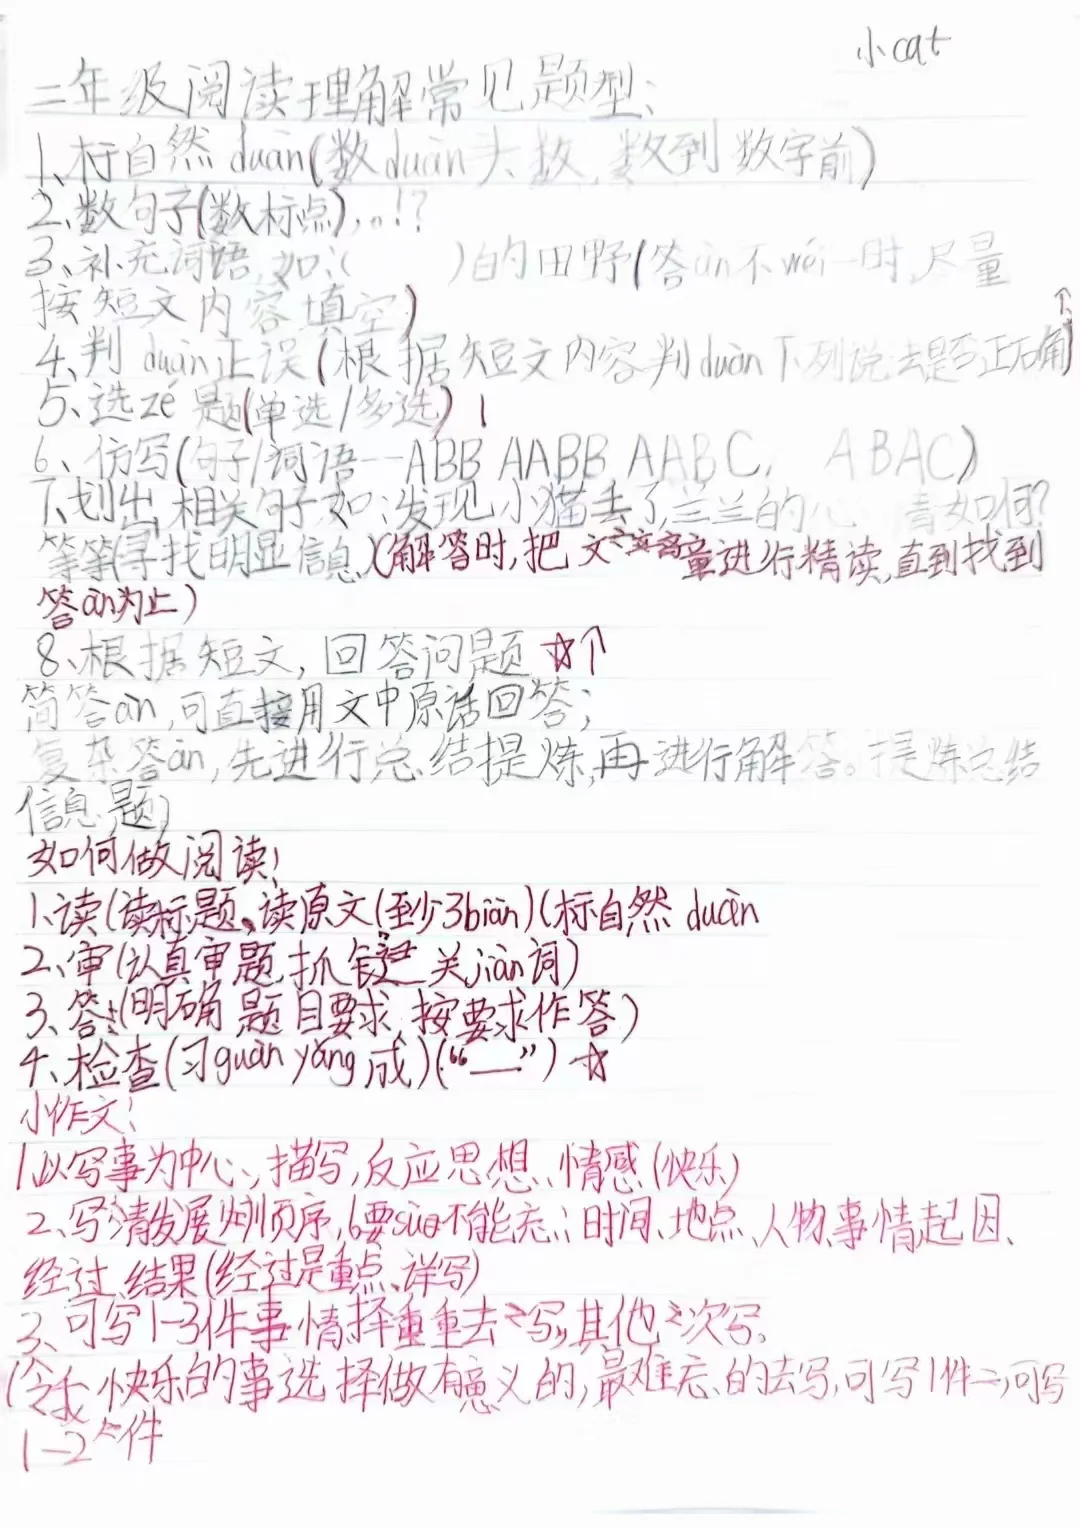 小cat
二年级阅读理解常见题型：
1、标自然duàn(数duàn头数,数到数字前)
2、数句子(数标点),。!?
3、补充词语,如:(　　　)的田野(答àn不wéi一时,尽量
按短文内容填空)
4、判duàn正误(根据短文内容判duàn下列说法是否正确)
5、选zé题(单选/多选)
6、仿写(句子/词语--ABB AABB AABC, ABAC)
7、划出相关句子,如:发现小猫丢了,兰兰的心情如何?
等等(寻找明显信息)(解答时,把文章进行精读,直到找到
答àn为止)
8、根据短文,回答问题☆↑
简答àn,可直接用文中原话回答;
复杂答àn,先进行总结提炼,再进行解答。提炼总结
信息题)
如何做阅读!
1、读(读标题,读原文(至少3biàn)(标自然duàn
2、审(认真审题,抓关jiàn词)
3、答:(明确题目要求,按要求作答)
4、检查(习guàn yǎng成)(“__”)☆
小作文!
1、以写事为中心、描写,反应思想、情感(快乐)
2、写清发展顺序,6要sù不能忘:时间、地点、人物、事情起因、
经过、结果(经过是重点、详写)
3、可写1-3件事情择重重去写,其他次写.
快乐的事选择做有意义的,最难忘的去写,可写1件,可写
1-2件